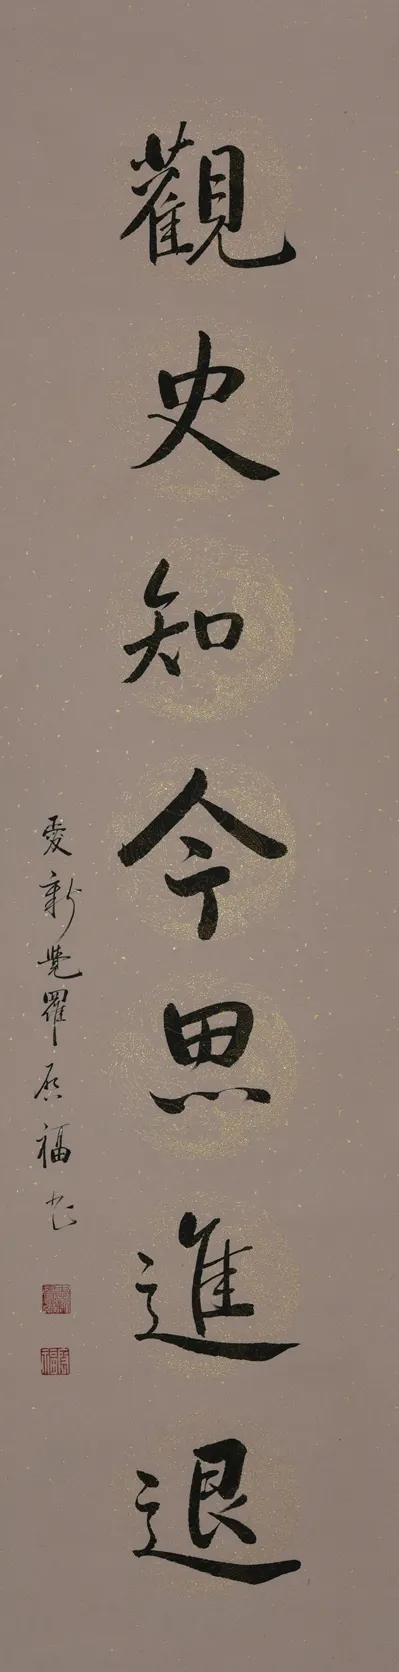 觀史知今思進退
愛新覺羅啟福书